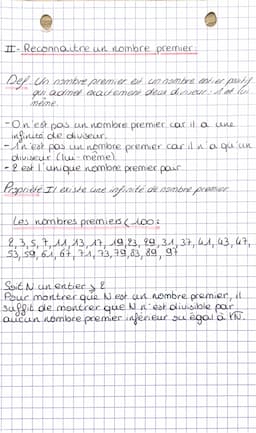 II- Reconnaitre un nombre premier
Def: Un nombre premier est un nombre entier positif
qui admet exactement deux diviseurs: 1 et lui
même.
- 0 n'est pas un nombre premier car il a une
infinité de diviseur.
- 1 n'est pas un nombre premier car il n'a qu'un
diviseur (lui-même).
- 2 est l'unique nombre premier pair
Propriété Il existe une infinité de nombre premier
Les nombres premiers < 100:
2, 3, 5, 7, 11, 13, 17, 19, 23, 29, 31, 37, 41, 43, 47,
53, 59, 61, 67, 71, 73, 79, 83, 89, 97
Soit N un entier ≥ 2
Pour montrer que N est un nombre premier, il
suffit de montrer que N n'est divisible par
aucun nombre premier inférieur ou égal à √N.